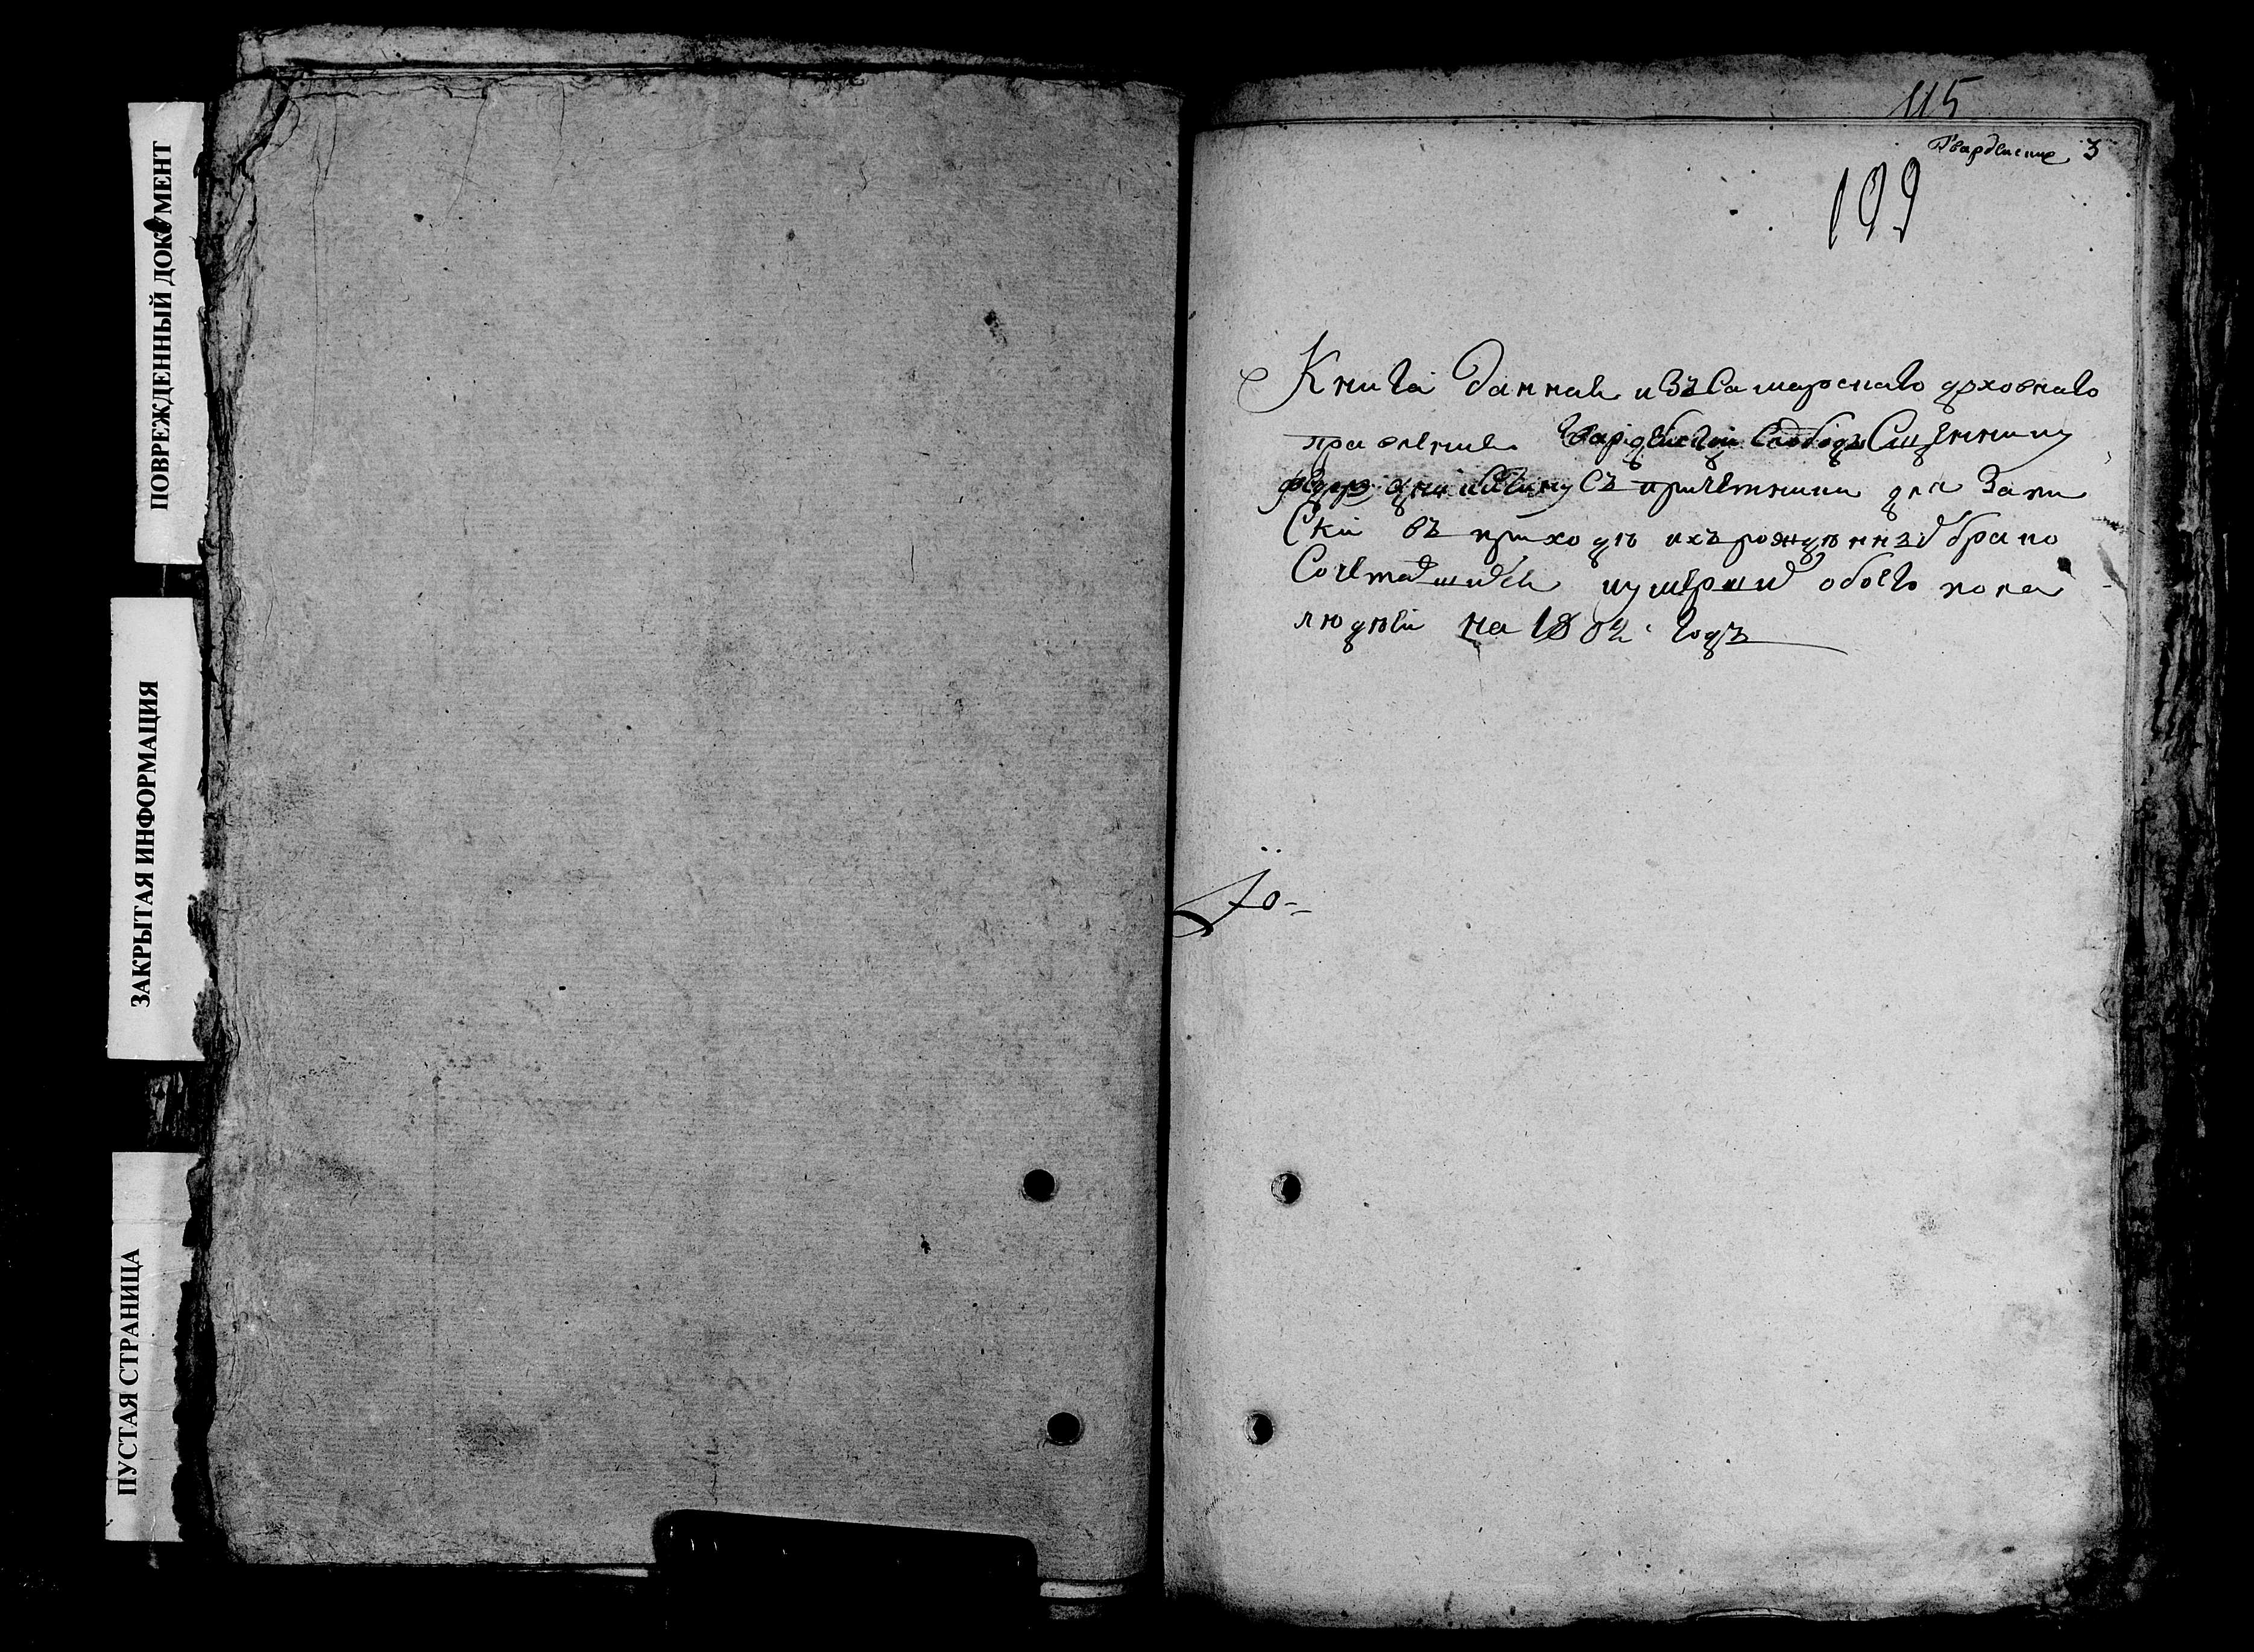 ПОВРЕЖДЕННЫЙ ДОКУМЕНТ
ЗАКРЫТАЯ ИНФОРМАЦИЯ
ПУСТАЯ СТРАНИЦА
115
3
199
Книга данная изъ Самарскаго духовнаго
правления Слободы Сщеннику
съ причетники для запи
ски въ приходѣ ихъ рожденных брако
сочетавшихся и умерших обоего пола
людѣй на 1802 годъ